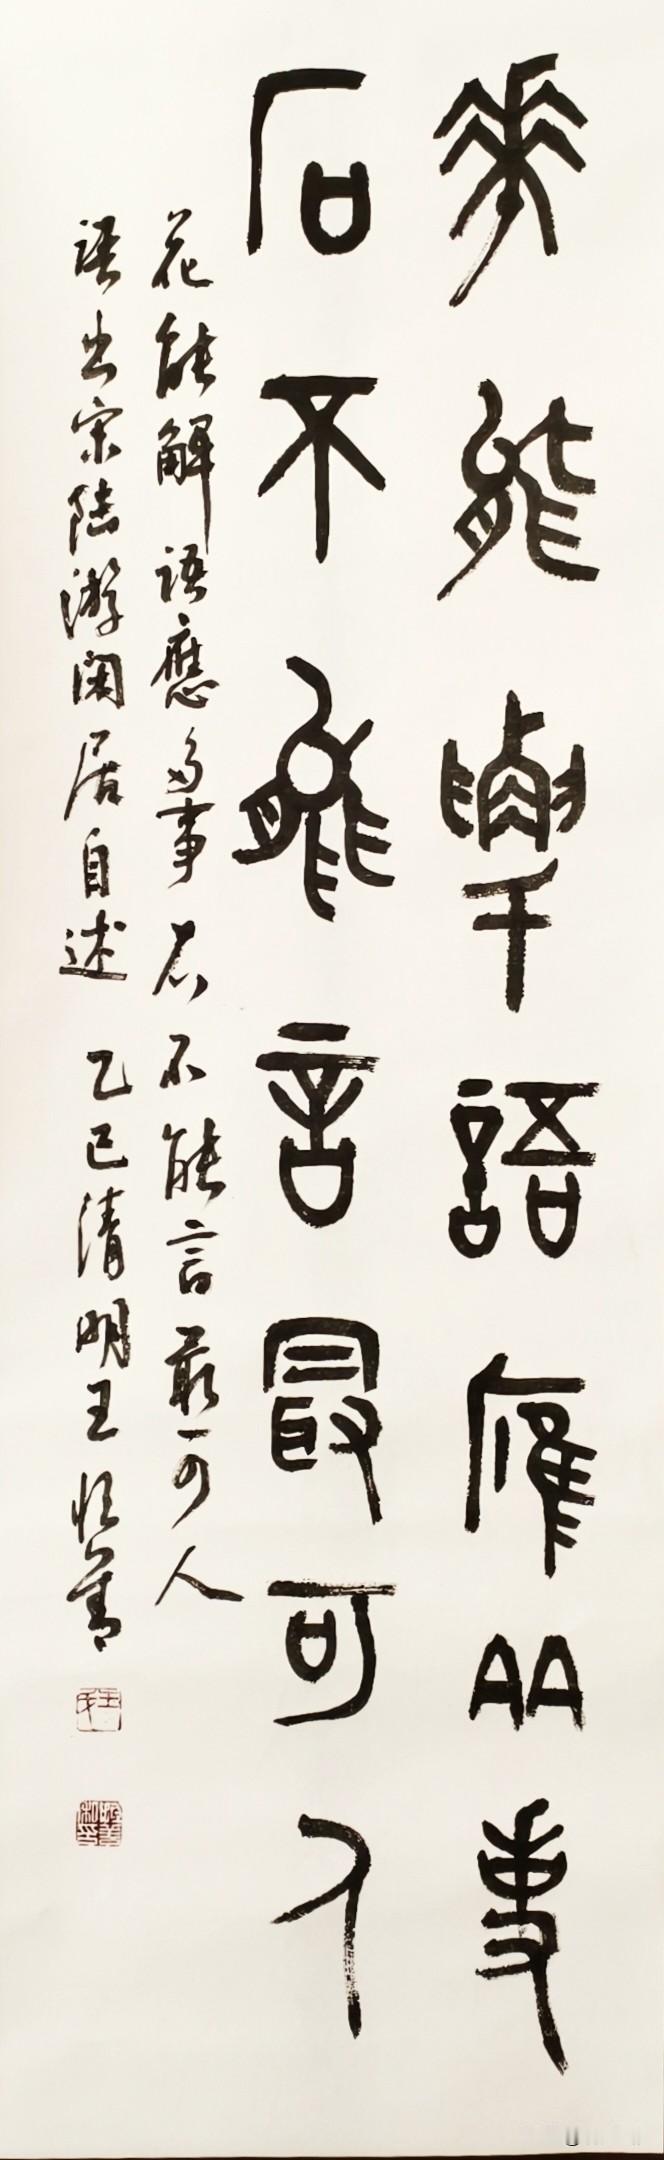 華能解語應多事
石不能言最可人
花能解語應多事石不能言最可人
語出宋陸游閑居自述 乙巳清明王